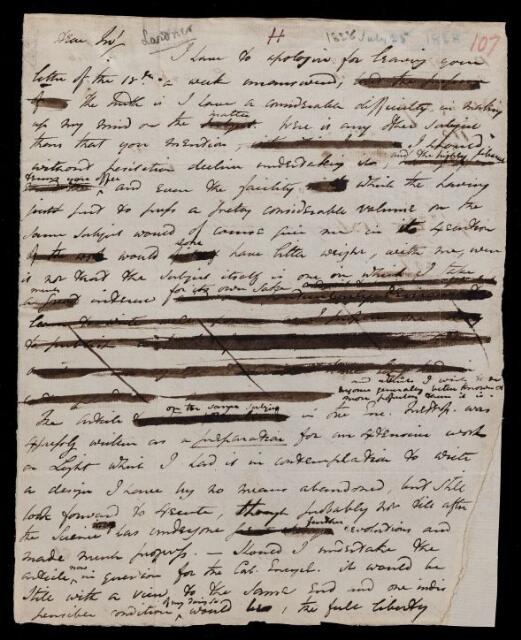 Lardner H 1828 July 25 1828 107
Dear Sir,
I have to apologise for leaving your
letter of the 18th a week unanswered,
The truth is I have a considerable difficulty in making
up my mind on the matter. Were it any other subject
than that you mention, I should
without hesitation decline undertaking it, and the highly liberal
terms you offer and even the facility which the having
just put to press a pretty considerable volume on the
same subject would of course give me in its execution
would alone have little weight with me, were
it not that the subject itself is one in which I take
much interest for its own sake
and which I wish to
become generally better known &
more popular than it is
The article on the same subject in the Enc. Metrop. was
expressly written as a preparation for an extensive work
on Light which I had it in contemplation to write
a design I have by no means abandoned, but still
look forward to execute, though probably not till after
the Science has undergone further revolutions and
made much progress. — Should I undertake the
article now in question for the Cab. Encycl. it would be
still with a view to the same End and one indis
pensible condition of my doing so would be, the full liberty